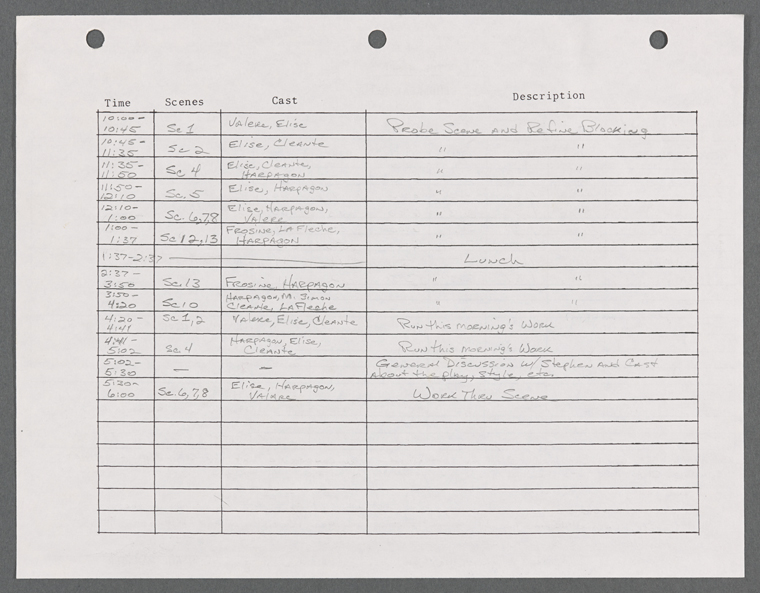 Time Scenes Cast Description
10:00- Valere, Elise Probe Scene and Refine Blocking
10:45 Sc 1
10:45- Elise, Cleante " "
11:35 Sc 2
11:35- Elise, Cleante,
11:50 Sc 4 Harpagon " "
11:50- Elise, Harpagon " "
12:10 Sc. 5
12:10- Elise, Harpagon, " "
1:00 Sc. 6,7,8 Valere
1:00- Frosine, LaFleche, " "
1:37 Sc 12,13 Harpagon
1:37-2:37 Lunch
2:37- " "
3:50 Sc. 13 Frosine Harpagon
3:50- Harpagon, M. Simon " "
4:20 Sc 10 Cleante, LaFleche
4:20- Sc 1,2 Valere, Elise, Cleante Run this morning's work
4:41
4:41- Harpagon, Elise, Run this morning's work
5:02 Sc 4 Cleante
5:02- General Discussion w/ Stephen and Cast
5:30 — — About the play, style, etc.
5:30- Elise, Harpagon, Work Thru Scene
6:00 Sc. 6,7,8 Valere